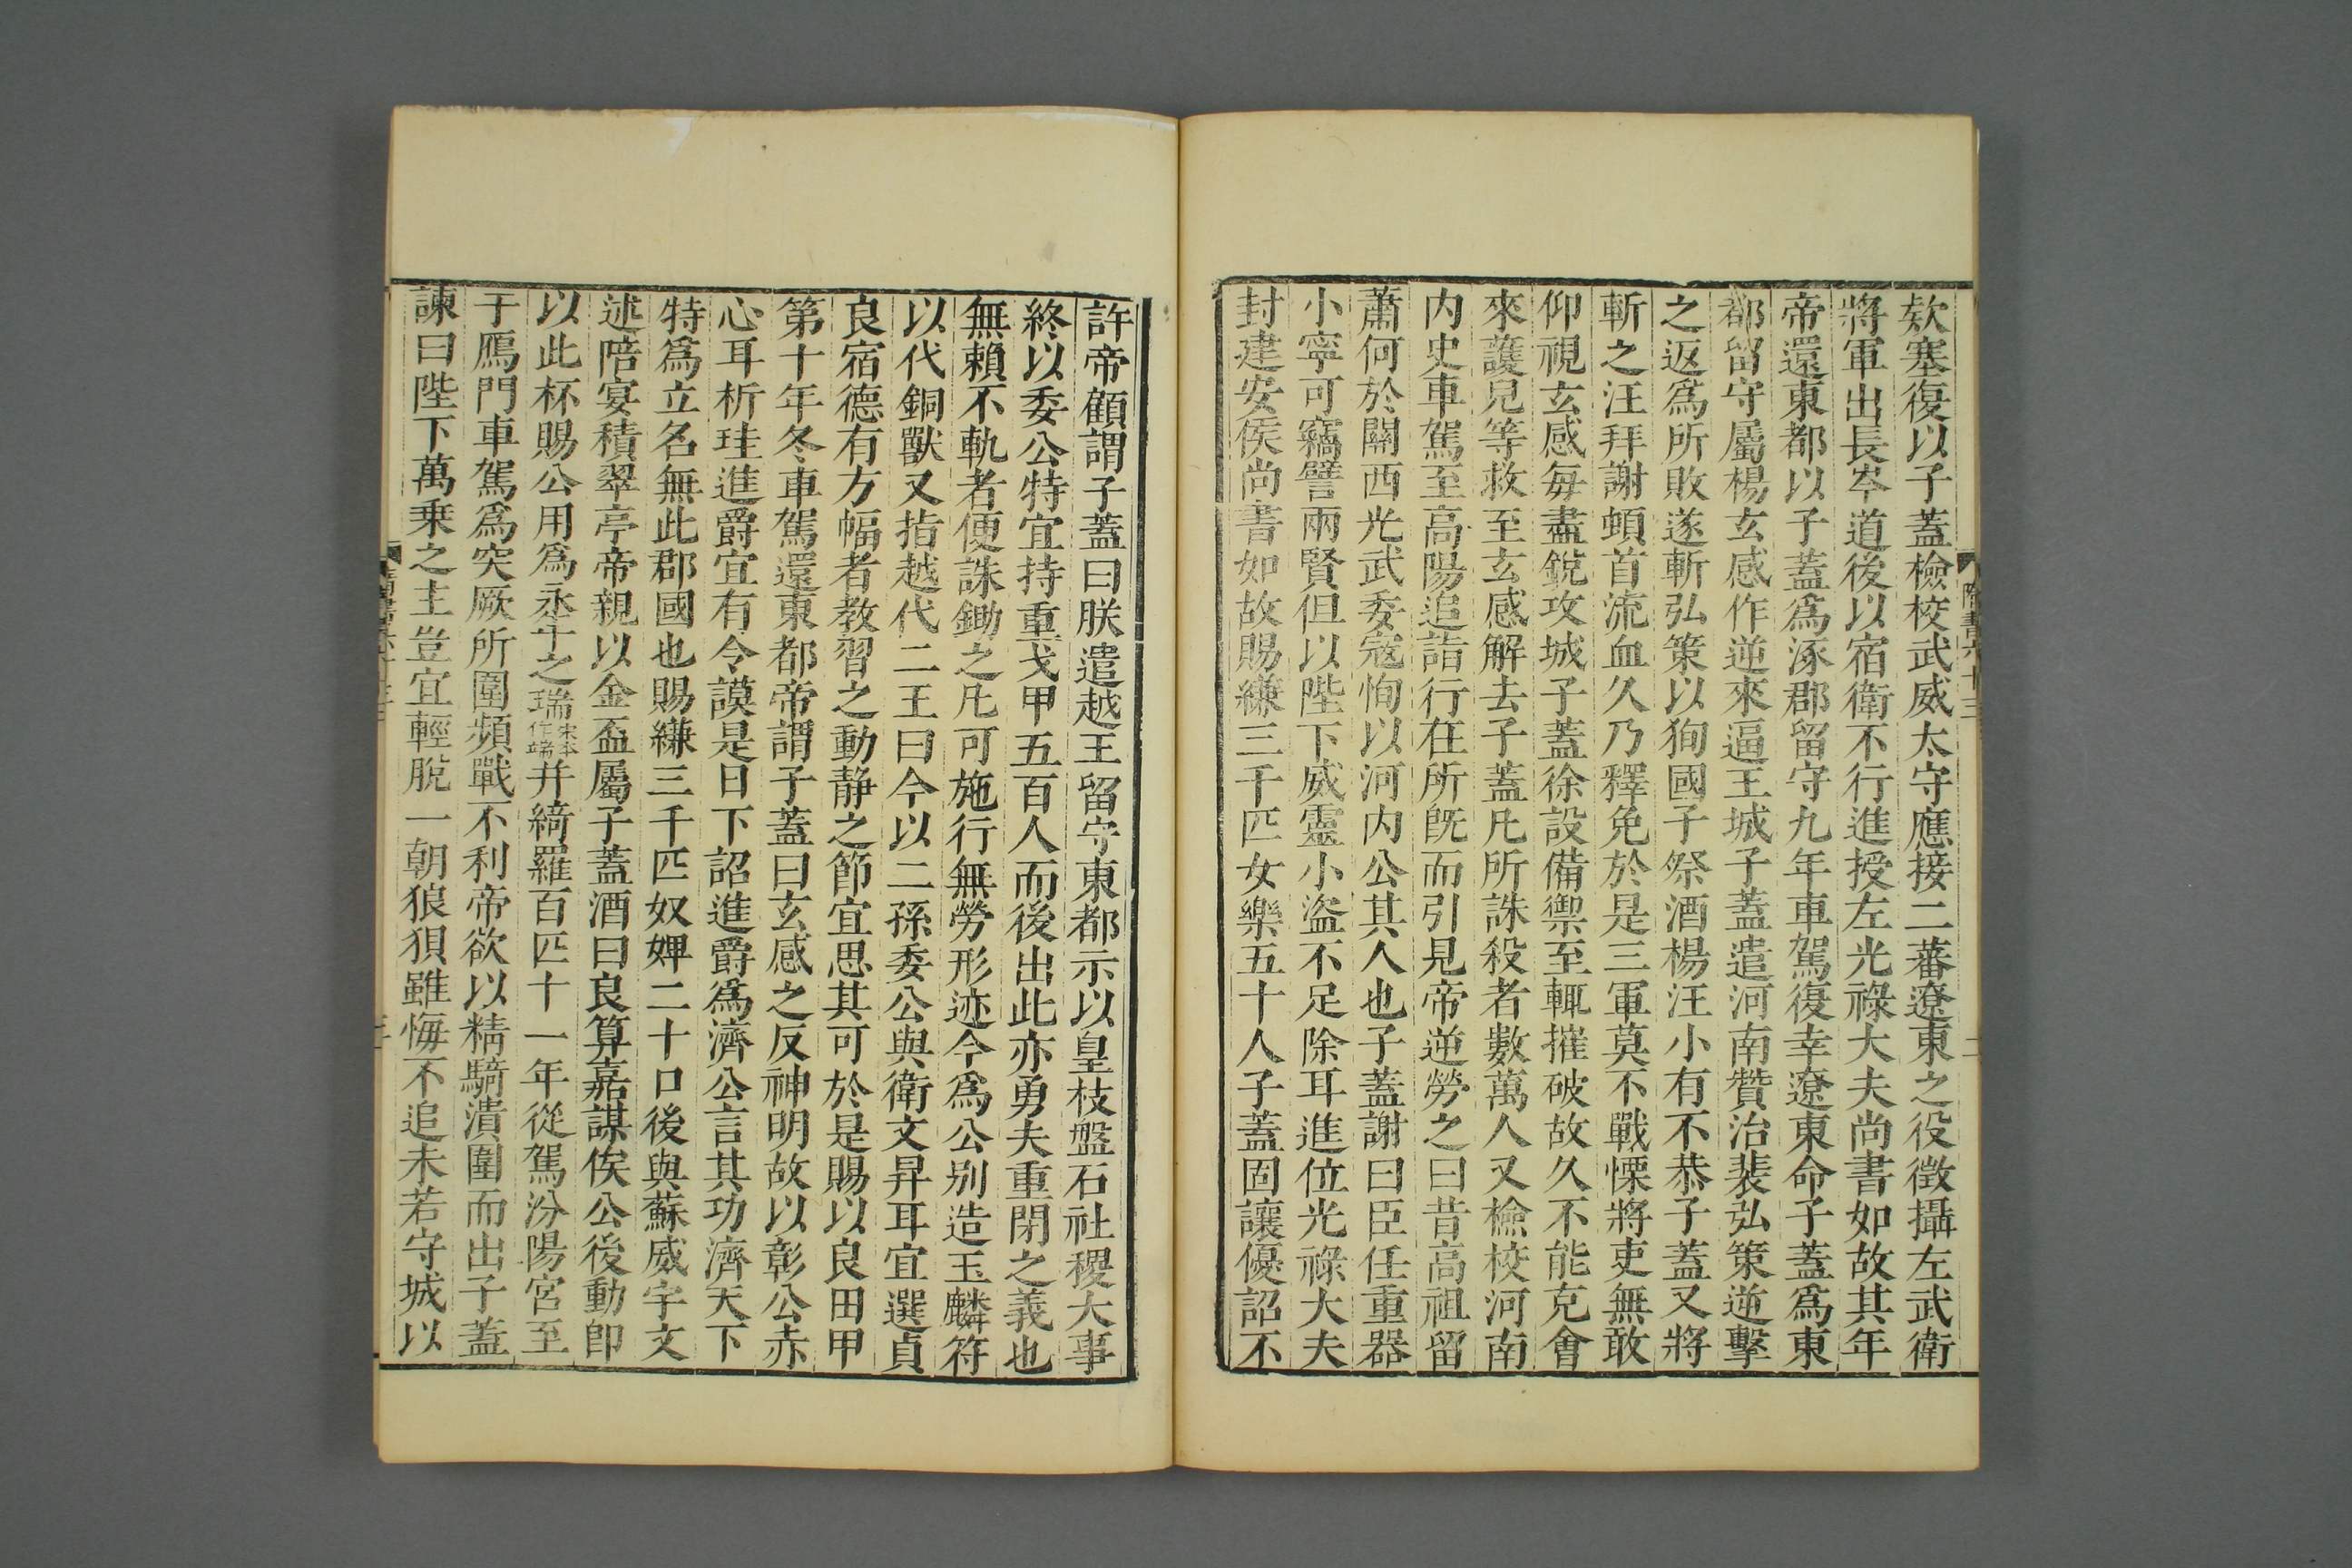 欵塞復以子蓋檢校武威太守應接二蕃遼東之役徵攝左武衛
將軍出長岑道後以宿衛不行進授左光祿大夫尚書如故其年
帝還東都以子蓋爲涿郡留守九年車駕復幸遼東命子蓋爲東
都留守屬楊玄感作逆來逼王城子蓋遣河南贊治裴弘策逆擊
之返爲所敗遂斬弘策以狥國子祭酒楊汪小有不恭子蓋又將
斬之汪拜謝頓首流血久乃釋免於是三軍莫不戰慄將吏無敢
仰視玄感每盡銳攻城子蓋徐設備禦至輒摧破故久不能克會
來護兒等救至玄感解去子蓋凡所誅殺者數萬人又檢校河南
内史車駕至高陽追詣行在所旣而引見帝逆勞之曰昔高祖留
蕭何於關西光武委寇恂以河内公其人也子蓋謝曰臣任重器
小寧可竊譬兩賢但以陛下威靈小盜不足除耳進位光祿大夫
封建安侯尚書如故賜縑三千匹女樂五十人子蓋固讓優詔不
隋書六十三
二
許帝顧謂子蓋曰朕遣越王留守東都示以皇枝盤石社稷大事
終以委公特宜持重戈甲五百人而後出此亦勇夫重閉之義也
無賴不軌者便誅鋤之凡可施行無勞形迹今爲公别造玉麟符
以代銅獸又指越代二王曰今以二孫委公與衛文昇耳宜選貞
良宿德有方幅者教習之動静之節宜思其可於是賜以良田甲
第十年冬車駕還東都帝謂子蓋曰玄感之反神明故以彰公赤
心耳析珪進爵宜有令謨是日下詔進爵爲濟公言其功濟天下
特爲立名無此郡國也賜縑三千匹奴婢二十口後與蘇威宇文
述陪宴積翠亭帝親以金盃屬子蓋酒曰良算嘉謀俟公後動即
以此杯賜公用爲永年之瑞宋本作端并綺羅百匹十一年從駕汾陽宮至
于鴈門車駕爲突厥所圍頻戰不利帝欲以精騎潰圍而出子蓋
諫曰陛下萬乗之主豈宜輕脫一朝狼狽雖悔不追未若守城以